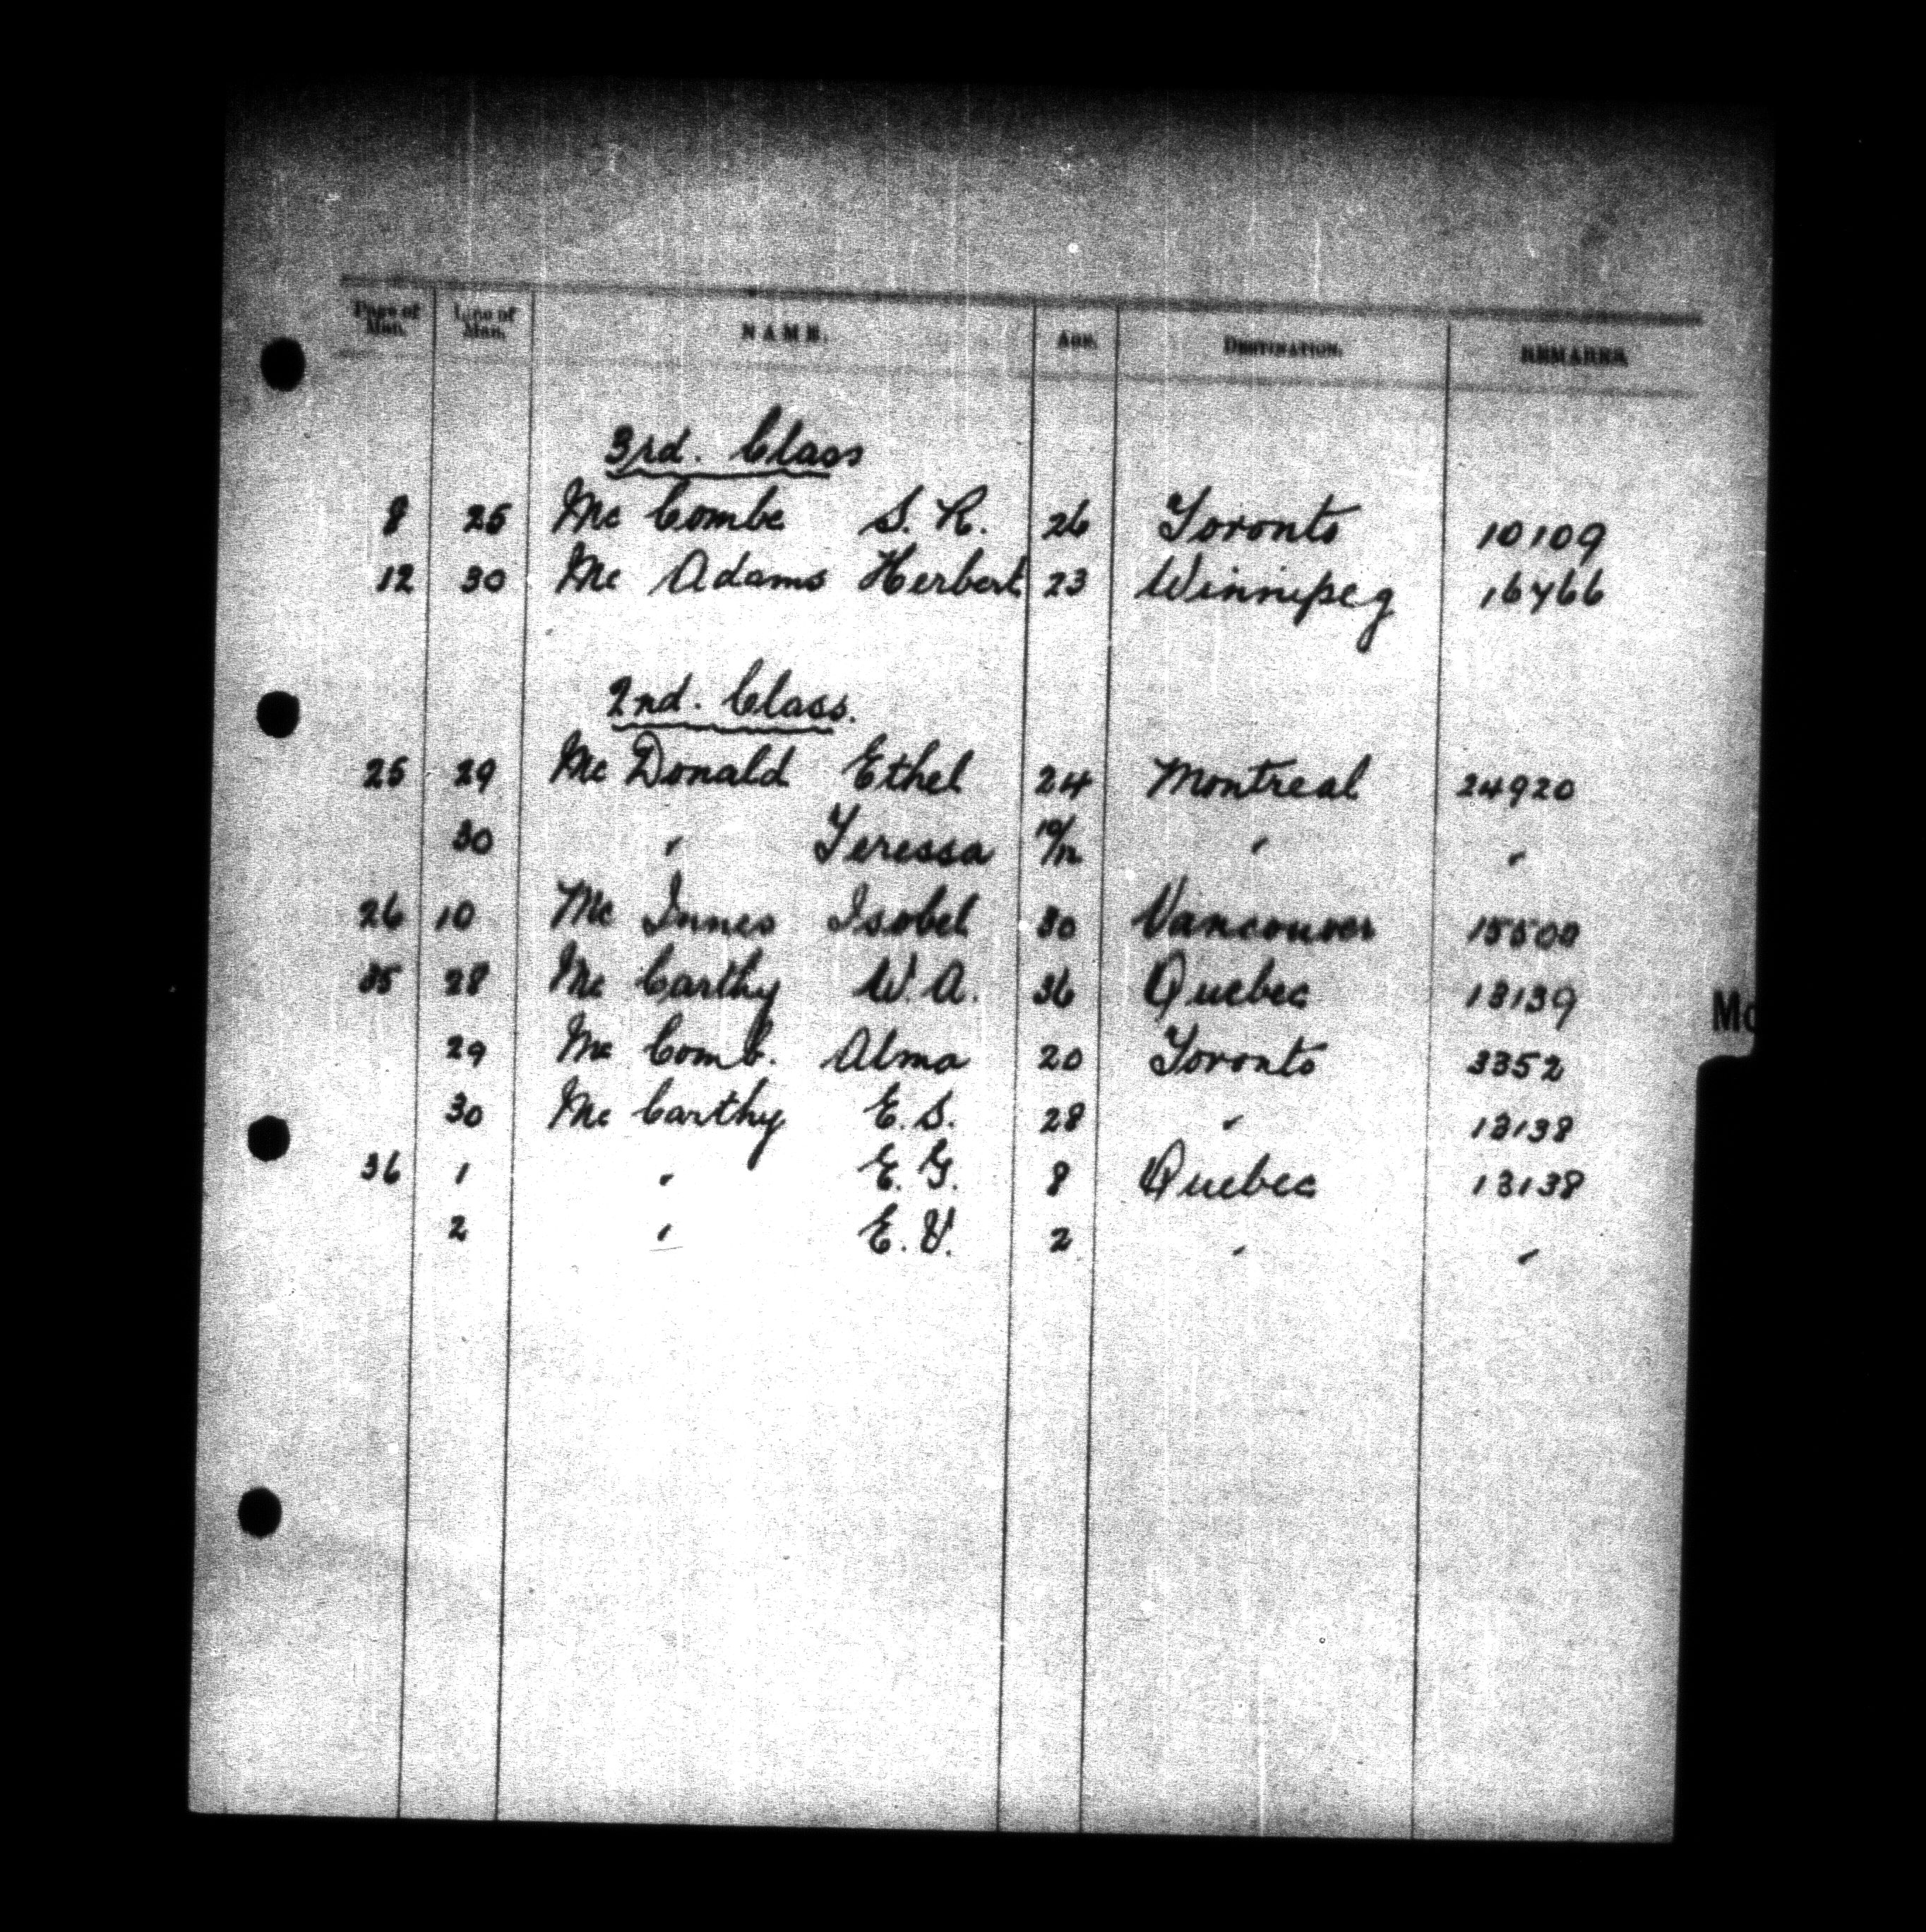 Page of Man. Line of Man. NAME. AGE. DESTINATION. REMARKS
3rd. Class
8 25 Mc Combe S. R. 26 Toronto 10109
12 30 Mc Adams Herbert 23 Winnipeg 16466
2nd. Class.
25 29 Mc Donald Ethel 24 Montreal 24920
30 " Teressa 10/12 " "
26 10 Mc Innes Isobel 30 Vancouver 15500
35 28 Mc Carthy W. A. 36 Quebec 13139
29 Mc Comb. Alma 20 Toronto 3352
30 Mc Carthy E. S. 28 " 13138
36 1 " E. G. 8 Quebec 13138
2 " E. V. 2 " "
Mc